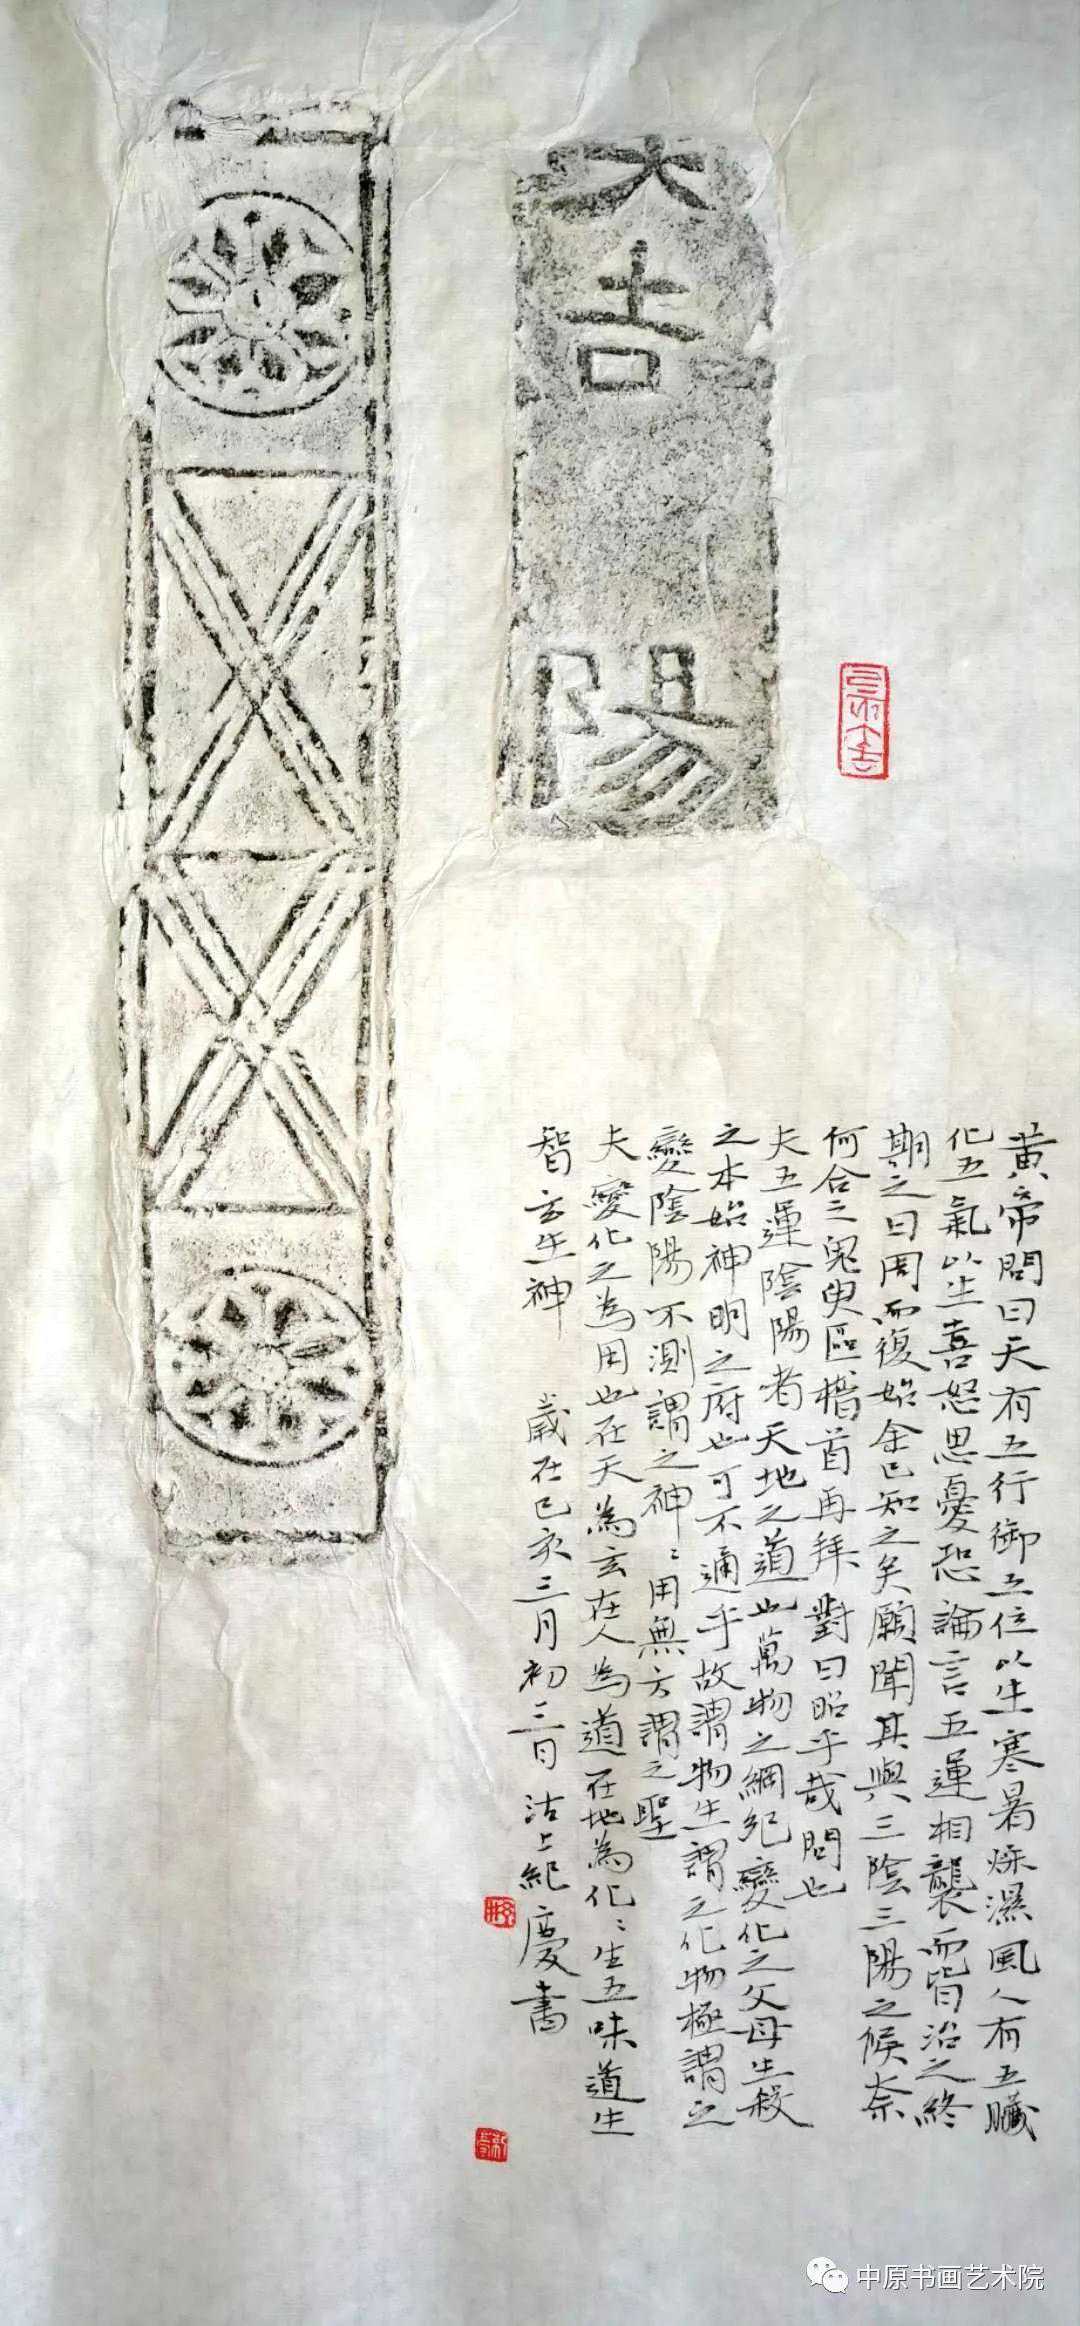 大吉
陽
黃帝問曰天有五行御五位以生寒暑燥濕風人有五臟
化五氣以生喜怒思憂恐論言五運相襲而皆治之終
期之日周而復始余已知之矣願聞其與三陰三陽之候奈
何合之鬼臾區稽首再拜對曰昭乎哉問也
夫五運陰陽者天地之道也萬物之綱紀變化之父母生殺
之本始神明之府也可不通乎故謂物生謂之化物極謂之
變陰陽不測謂之神〻用無方謂之聖
夫變化之為用也在天為玄在人為道在地為化〻生五味道生
智玄生神
歲在己亥三月初三日沽上紀慶書
中原书画艺术院